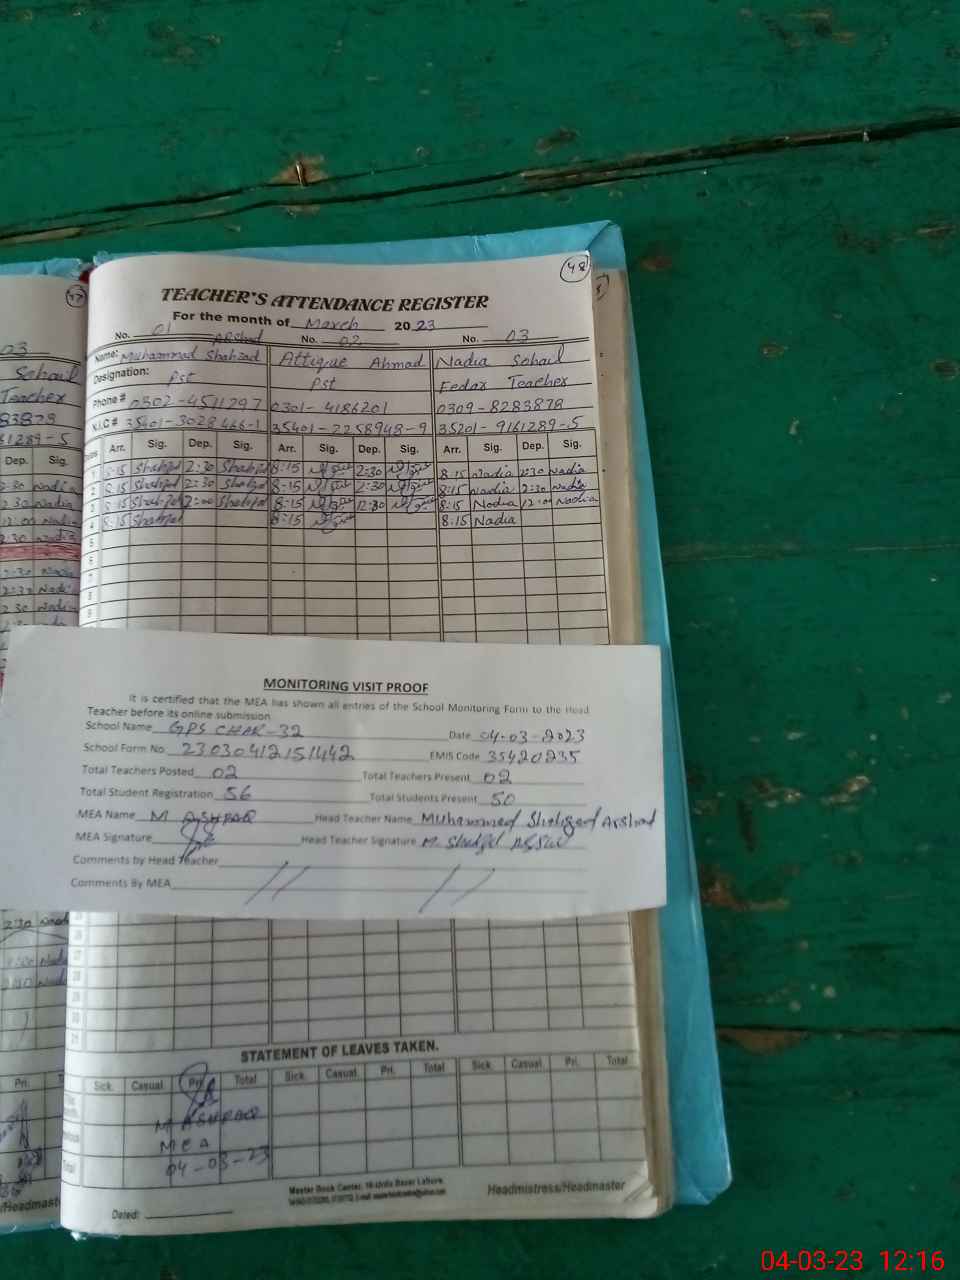 48
TEACHER'S ATTENDANCE REGISTER
For the month of March 2023
No. 01 No. 02 No. 03
Arshad
Name: Muhammad Shahzad Attique Ahmad Nadia Sohail
Designation: Pst Pst Fedar Teacher
Phone # 0302-4511297 0301-4186201 0309-8283878
N.I.C # 35401-3028466-1 35401-2258948-9 35201-9161289-5
Dates Arr. Sig. Dep. Sig. Arr. Sig. Dep. Sig. Arr. Sig. Dep. Sig.
1 8:15 Shahzad 2:30 Shahzad 8:15 2:30 8:15 Nadia 2:30 Nadia
2 8:15 Shahzad 2:30 Shahzad 8:15 2:30 8:15 Nadia 2:30 Nadia
3 8:15 Shahzad 2:00 Shahzad 8:15 12:30 8:15 Nadia 12:00 Nadia
4 8:15 Shahzad 8:15 8:15 Nadia
5
6
7
8
9
MONITORING VISIT PROOF
It is certified that the MEA has shown all entries of the School Monitoring Form to the Head
Teacher before its online submission
School Name GPS CHAK-32 Date 04-03-2023
School Form No 23030412151442 EMIS Code 35420235
Total Teachers Posted 02 Total Teachers Present 02
Total Student Registration 56 Total Students Present 50
MEA Name M ASHFAQ Head Teacher Name Muhammad Shahzad Arshad
MEA Signature Head Teacher Signature
Comments by Head Teacher
Comments By MEA
26
27
28
29
30
31
STATEMENT OF LEAVES TAKEN.
Sick. Casual Pri. Total Sick. Casual. Pri. Total Sick. Casual. Pri. Total
M ASHFAQ
MEA
Total 04-03-23
Master Book Center, 16-Urdu Bazar Lahore.
Headmistress/Headmaster
Dated:
47
03
Sohail
Teacher
83878
61289-5
Dep. Sig.
Pri.
/Headmaster
04-03-23 12:16